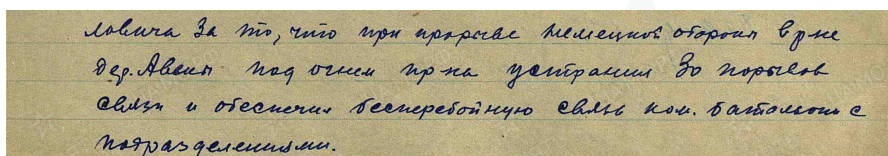 ловича за то, что при прорыве немецкой обороны в р-не
дер. Авены под огнем пр-ка устранил 30 порывов
связи и обеспечил бесперебойную связь ком. батальона с
подразделениями.